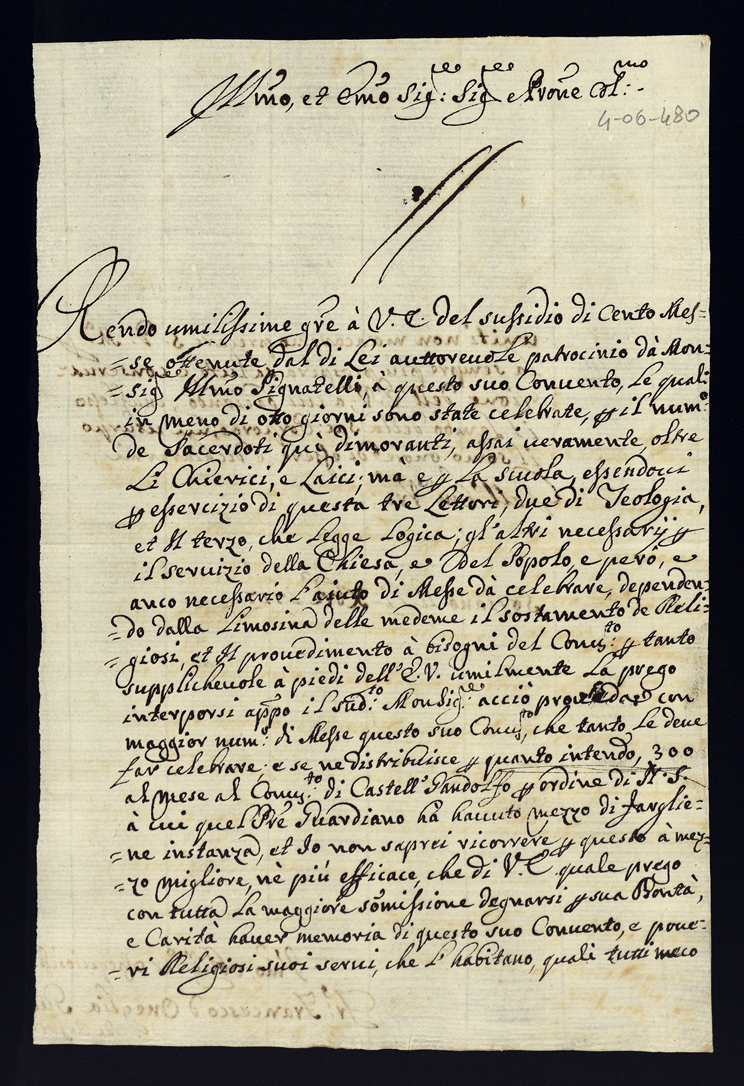 Illmo, et Emo Sig:re Sig:re e Prone Col:mo
4-06-480
Rendo umilissime gre à V. E. del sussidio di Cento Mes=
=se ottenute dal di Lei auttoreuole patrocinio dà Mon=
=sigre Illmo Pignatelli, à questo suo Conuento, le quali
in meno di otto giorni sono state celebrate, p il num.o
de Sacerdoti quì dimoranti, assai ueramente oltre
Li Chierici, e Laici; mà e p La scuola, essendoui
p essercizio di questa tre Lettori, due di Teologia,
et Il terzo, che Legge Logica; gl'altri necessarij p
il seruizio della Chiesa, e del Popolo, e però, e
anco necessario l'aiuto di Messe dà celebrare, dependen=
=do dalla Limosina delle medeme il sostamento de Reli=
=giosi, et Il prouedimento à bisogni del Conu:to p tanto
supplicheuole à piedi dell'E.V. umilmente La prego
interporsi appo il sud:to Monsig:re acciò proueda con
maggior num:o di Messe questo suo Conu:to, che tanto Le deue
far celebrare; e se ne distribuisce p quanto intendo, 300
al mese al Conu:to di Castell'Gandolfo p ordine di N. S.
à cui quel Pre Guardiano hà hauuto mezzo di farglie=
=ne instanza, et Io non saprei ricorrere p questo à mez=
=zo migliore, nè più efficace, che di V. E. quale prego
con tutta La maggiore somissione degnarsi p sua Bontà,
e Carità hauer memoria di questo suo Conuento, e poue=
=ri Religiosi suoi serui, che L'habitano, quali tutti meco